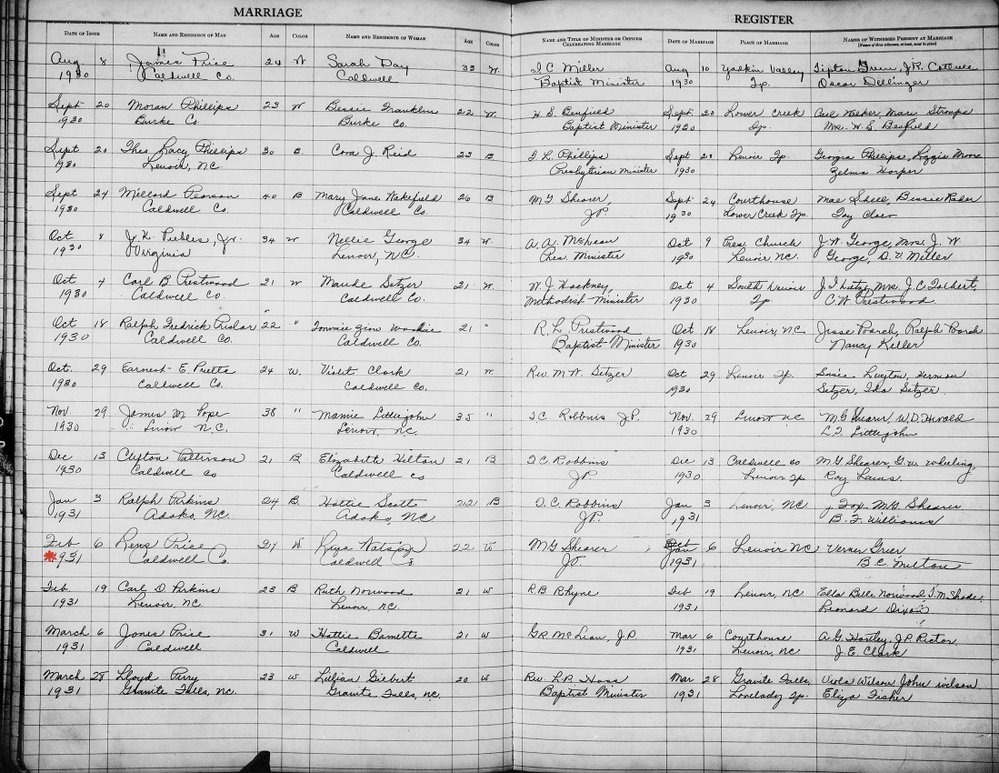 MARRIAGE
REGISTER
DATE OF ISSUE NAME AND RESIDENCE OF MAN AGE COLOR NAME AND RESIDENCE OF WOMAN AGE COLOR NAME AND TITLE OF MINISTER OR OFFICER CELEBRATING MARRIAGE DATE OF MARRIAGE PLACE OF MARRIAGE NAMES OF WITNESSES PRESENT AT MARRIAGE
Aug 8 James Price 24 W Sarah Day 33 W. I C Miller Aug 10 Yadkin Valley Tipton Green, J.R.
1930 Caldwell Co. Caldwell Baptist Minister 1930 Tp. Oscar Dellinger
Sept 20 Moran Phillips 23 W Bessie Franklin 22 W H S Benfield Sept 20 Lower Creek Carl Mari Stroups
1930 Burke Co. Burke Co. Baptist Minister 1930 Tp. Mrs. H S Benfield
Sept 20 Theo Lacy Phillips 30 B. Cora J. Reid 23 B I L Phillips Sept 20 Lenoir Tp. Georgia Phillips, Lizzie Moore
1930 Lenoir, NC Presbyterian Minister 1930 Zelma Harper
Sept 24 Millard Pearson 40 B Mary Jane Wakefield 26 B M G Shearer, Sept 24 Courthouse Mae Bessie Rader
1930 Caldwell Co. Caldwell Co. JP 1930 Lower Creek Tp.
Oct 8 J. K. Peebles, Jr. 34 W Nellie George 34 W. A. A. McLean Oct 9 Pres. Church J. W. George, Mrs. J. W
1930 Virginia Lenoir, NC. Pres. Minister 1930 Lenoir NC. George, D. V Miller
Oct 4 Carl B. Prestwood 21 W Maude Setzer 21 W. W. J. Hackney, Oct 4 South Lenoir J I Lutz, Mrs. J. C. Talbert,
1930 Caldwell Co. Caldwell Co. Methodist Minister 1930 Tp C. W. Prestwood
Oct 18 Ralph Fredrick 22 " Tommie 21 " R. L. Prestwood Oct 18 Lenoir, NC Jesse Poarch, Ralph Poarch
1930 Caldwell Co. Caldwell Co. Baptist Minister 1930 Nancy Keller
Oct. 29 Earnest E. Puette 24 W. Violet Clark 21 W Rev. M. W. Setzer Oct 29 Lenoir Tp. Herman
1930 Caldwell Co. Caldwell Co. 1930 Setzer, Ida Setzer
Nov 29 James M. Pope 38 " Mamie Littlejohn 35 " I. C. Robbins JP. Nov. 29 Lenoir NC M. G Shearer, W. D.
1930 Lenoir N.C. Lenoir, N.C. 1930 L. Littlejohn
Dec 13 Clifton Patterson 21 B Elizabeth Hilton 21 B I C Robbins Dec 13 Caldwell Co M. G. Shearer, G. W.
1930 Caldwell Co Caldwell Co JP 1930 Lenoir Tp Roy Laws.
Jan 3 Ralph Perkins 24 B. Hattie Scott 21 B I. C. Robbins Jan 3 Lenoir, NC J Fox M. G Shearer
1931 Adako, NC. Adako, NC JP. 1931 B. F. Williams
Feb 6 Rens Price 21 W Reya Watson 22 W M G Shearer Jan 6 Lenoir NC Verner Greer
1931 Caldwell Co Caldwell Co. JP 1931 B. C. Melton
Feb. 19 Carl D. Perkins 23 B Ruth Norwood 21 W R. B. Rhyne Feb 19 Lenoir, NC Ella Belle Norwood, I. M. Shade,
1931 Lenoir, NC. Lenoir, NC. 1931 Leonard Dixon
March 6 Jones Price 31 W Hattie Barnette 21 W G. R. McLean, J.P. Mar 6 Courthouse A. G. Hartley, J. P. Rector
1931 Caldwell Caldwell 1931 Lenoir, NC J. E. Clark
March 28 Lloyd Perry 23 W Lillian Gilbert 20 W Rev L. P. Mar 28 Granite Falls, Viola Wilson, John Wilson
1931 Granite Falls, NC. Granite Falls, NC. Baptist Minister 1931 Lovelady Tp. Eliza Fisher